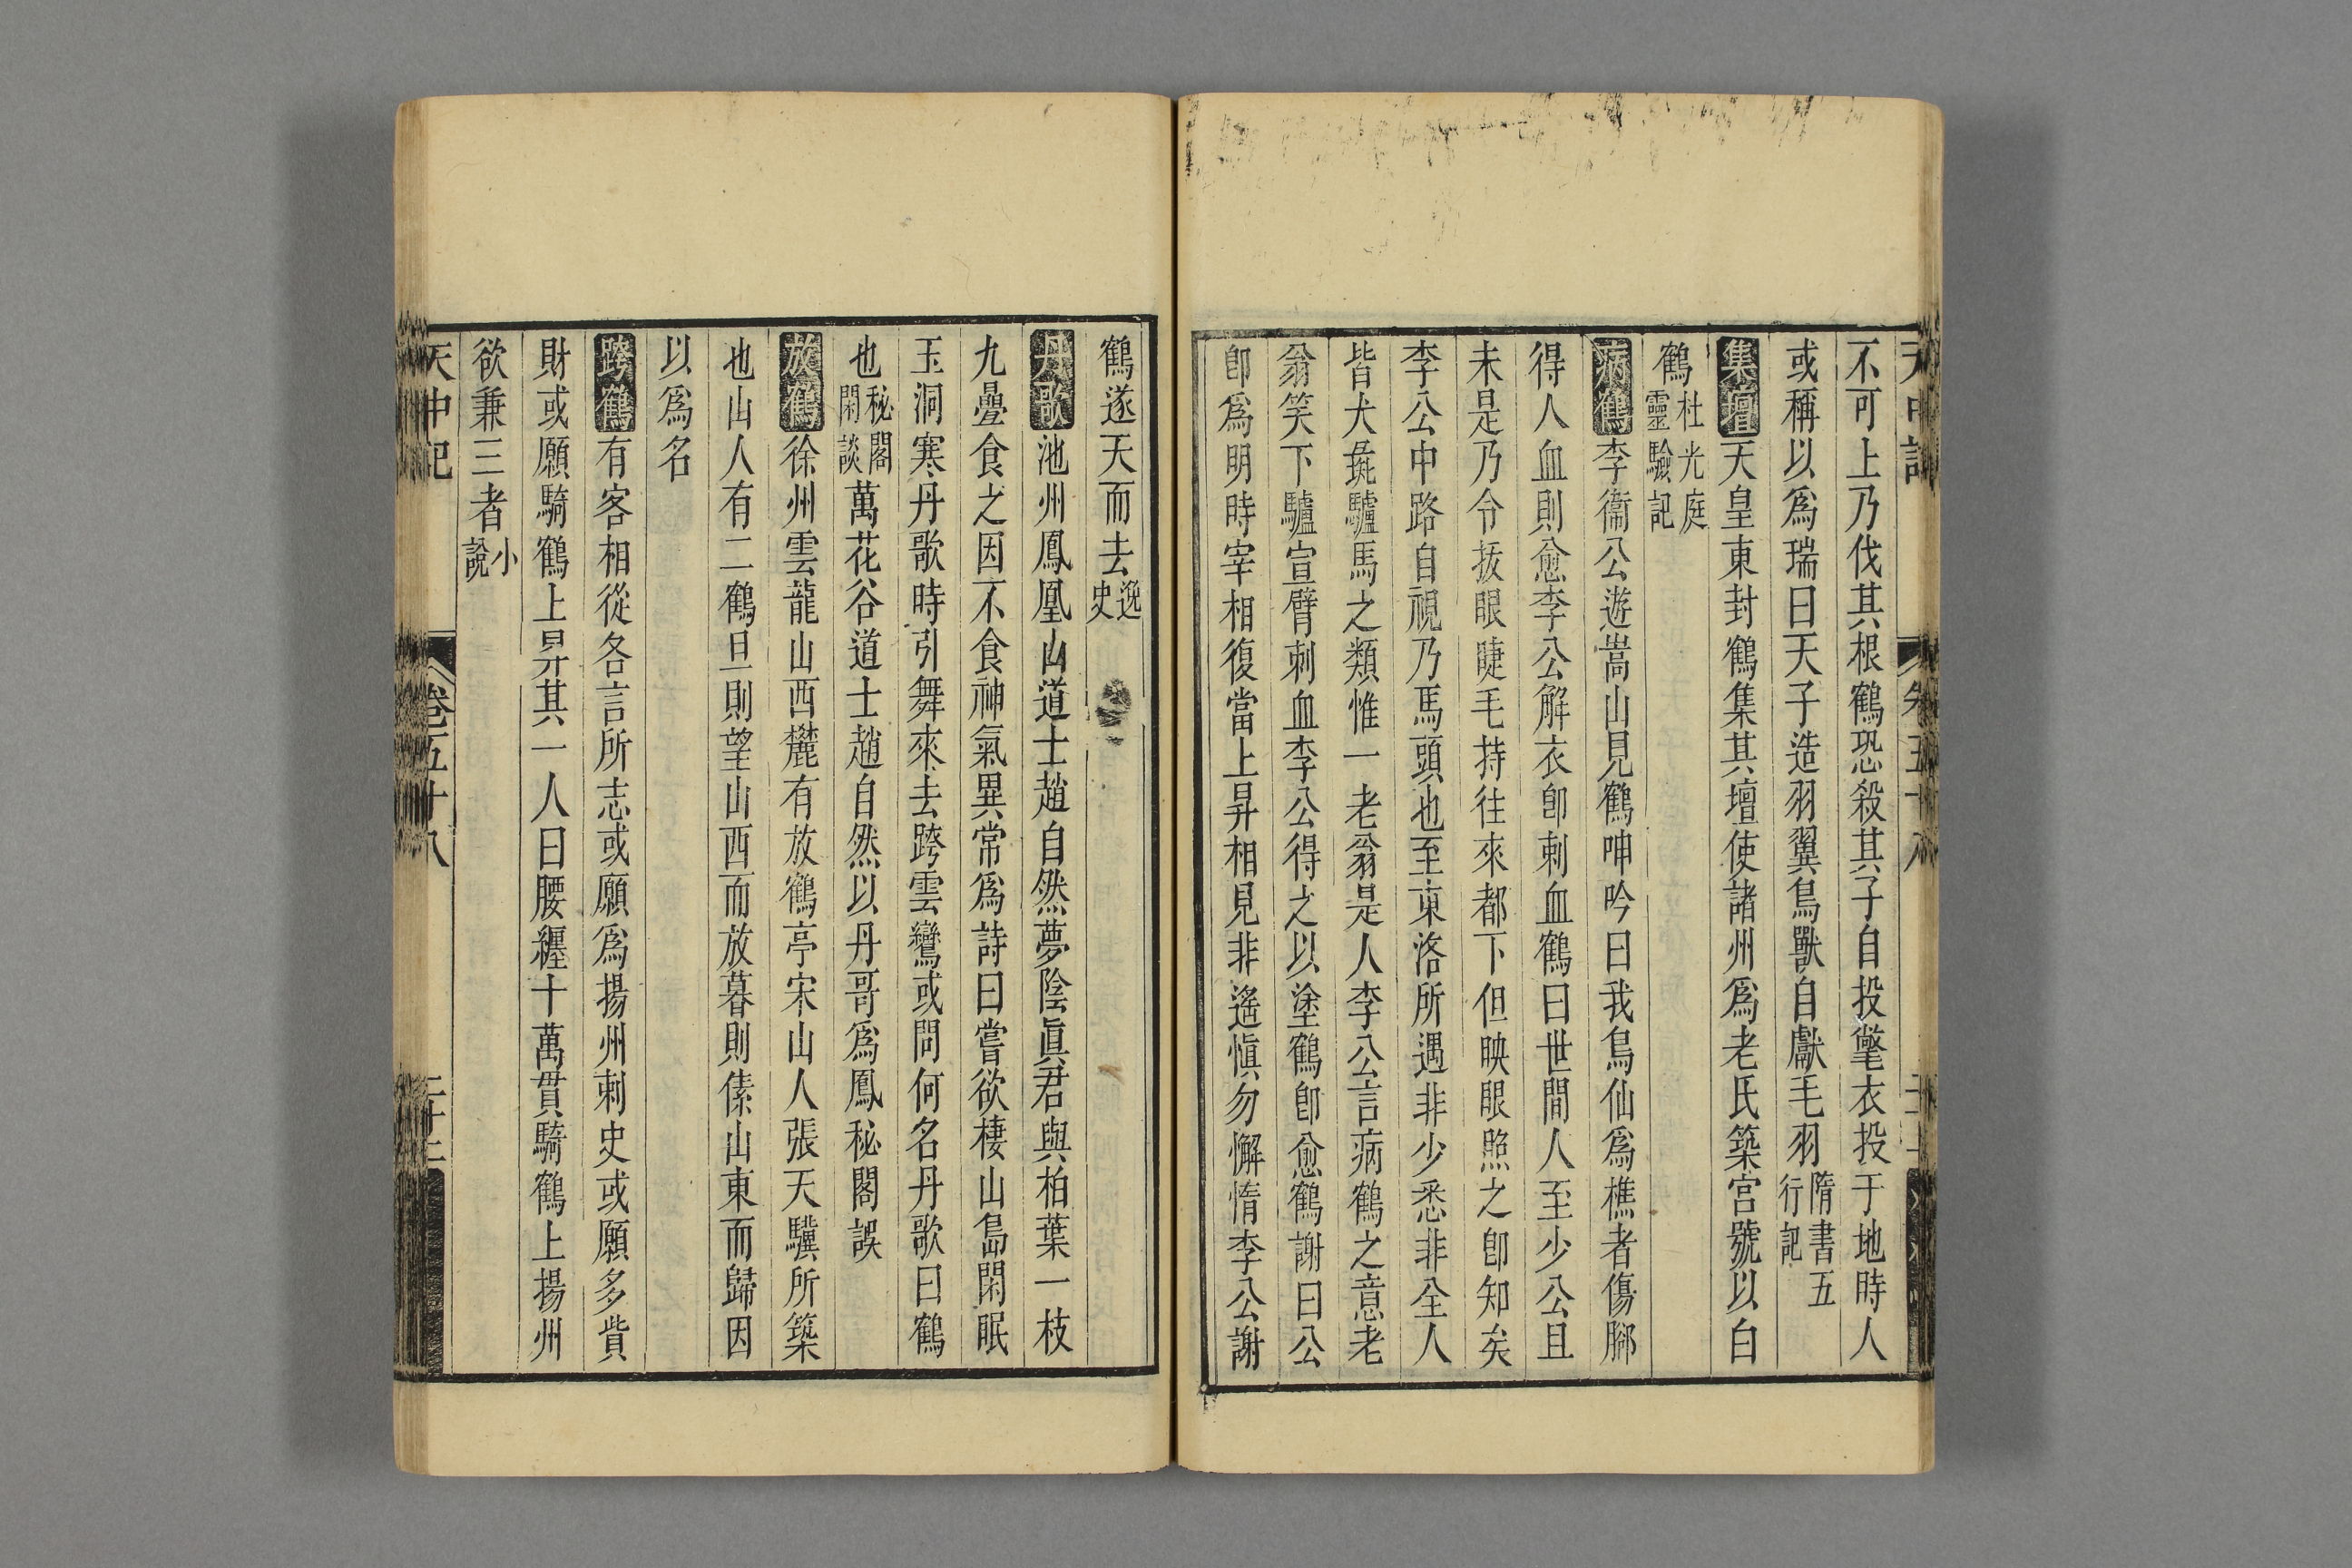 不可上乃伐其根鶴恐殺其子自投氅衣投于地時人
或稱以爲瑞曰天子造羽翼鳥獸自獻毛羽隋書五行記
集壇天皇東封鶴集其壇使諸州爲老氏築宫號以白
鶴杜光庭靈驗記
病鶴李衞公遊嵩山見鶴呻吟曰我鳥仙爲樵者傷腳
得人血則愈李公解衣卽刺血鶴曰世間人至少公且
未是乃令拔眼睫毛持往來都下但映眼照之卽知矣
李公中路自視乃馬頭也至東洛所遇非少悉非全人
皆犬彘驢馬之類惟一老翁是人李公言病鶴之意老
翁笑下驢宣臂刺血李公得之以塗鶴卽愈鶴謝曰公
卽爲明時宰相復當上昇相見非遙愼勿懈惰李公謝
鶴遂天而去逸史
丹歌池州鳳凰山道士趙自然夢陰眞君與柏葉一枝
九疊食之因不食神氣異常爲詩曰嘗欲棲山島閑眠
玉洞寒丹歌時引舞來去跨雲鸞或問何名丹歌曰鶴
也秘閣閑談萬花谷道士趙自然以丹哥爲鳳秘閣誤
放鶴徐州雲龍山西麓有放鶴亭宋山人張天驥所築
也山人有二鶴旦則望山西而放暮則傃山東而歸因
以爲名
跨鶴有客相從各言所志或願爲揚州刺史或願多貲
財或願騎鶴上昇其一人曰腰纒十萬貫騎鶴上揚州
欲兼三者小說
天中記 卷五十八